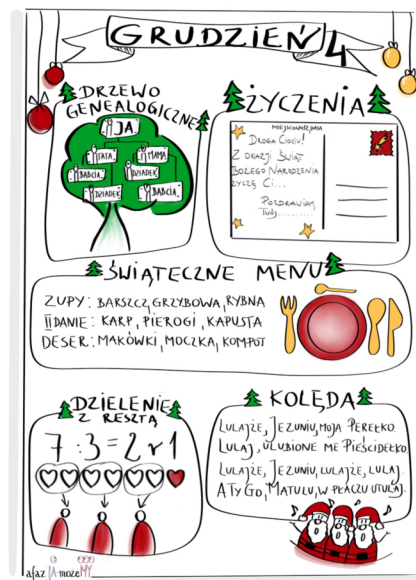 GRUDZIEŃ 4
DRZEWO
GENEALOGICZNE
JA
TATA
MAMA
BABCIA
DZIADEK
DZIADEK
BABCIA
ŻYCZENIA
MIEJSCOWOŚĆ, DATA
DROGA CIOCIU!
Z OKAZJI ŚWIĄT
BOŻEGO NARODZENIA
ŻYCZĘ CI...
POZDRAWIAM,
TWÓJ..........
ŚWIĄTECZNE MENU
ZUPY: BARSZCZ, GRZYBOWA, RYBNA
II DANIE: KARP, PIEROGI, KAPUSTA
DESER: MAKÓWKI, MOCZKA, KOMPOT
DZIELENIE
Z RESZTĄ
7:3=2 r 1
KOLĘDA
LULAJŻE, JEZUNIU, MOJA PEREŁKO.
LULAJ, ULUBIONE ME PIEŚCIDEŁKO.
LULAJŻE, JEZUNIU, LULAJŻE, LULAJ.
A TY GO, MATULU, W PŁACZU UTULAJ.
afaz JA może MY